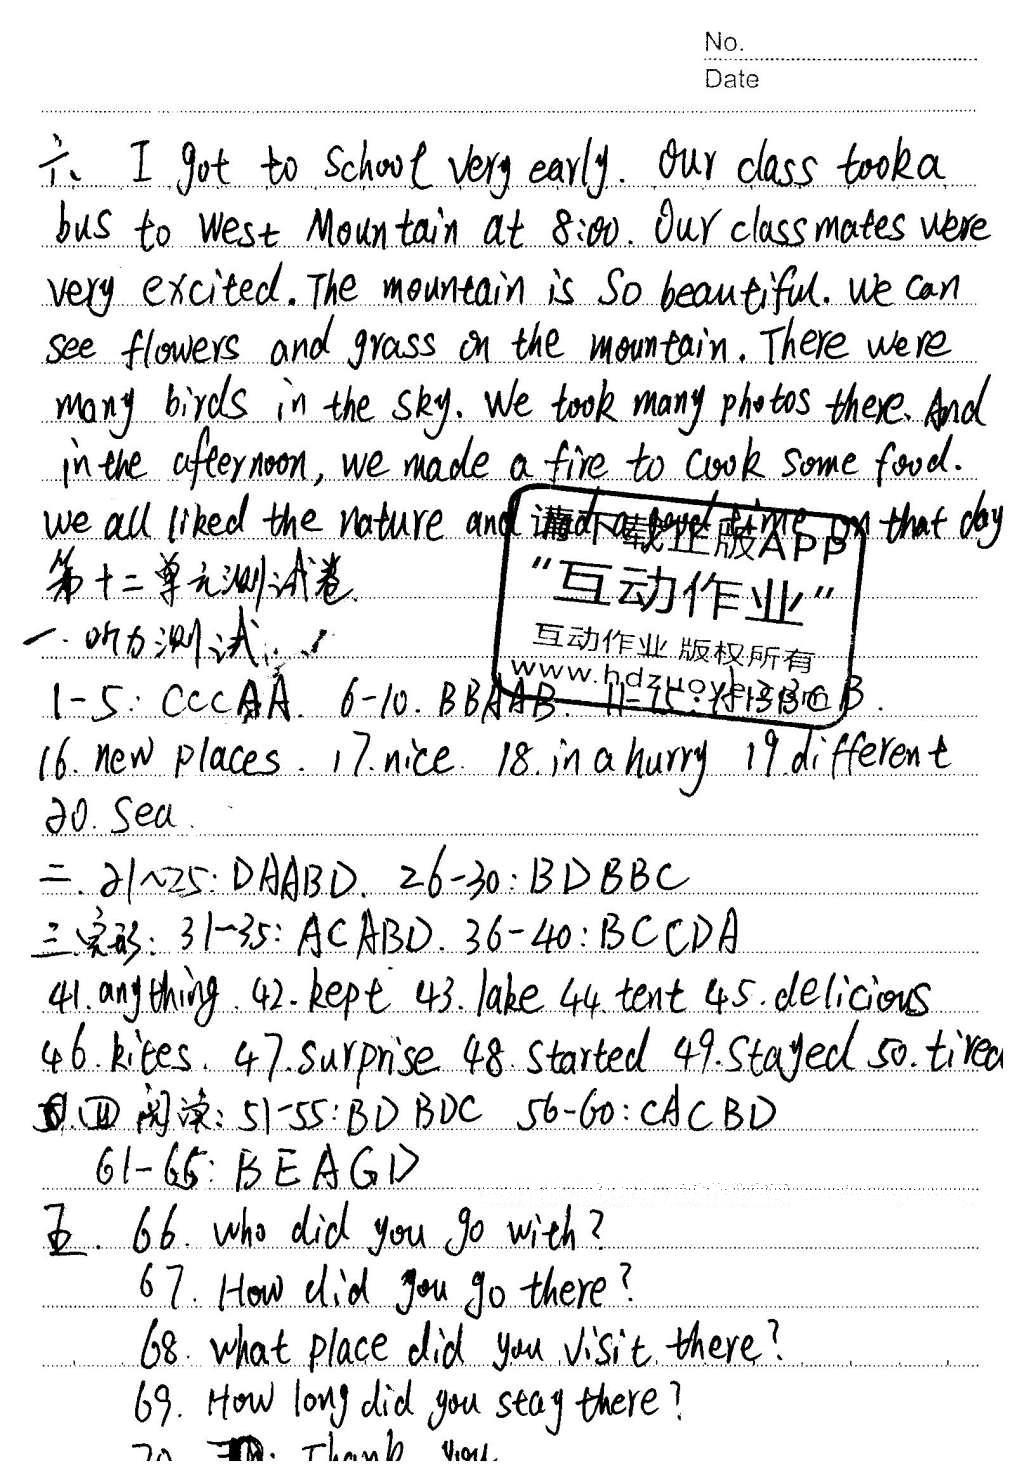 No.
Date
六、I got to School very early. Our class took a
bus to West Mountain at 8:00. Our classmates were
very excited. The mountain is So beautiful. We can
see flowers and grass on the mountain. There were
many birds in the sky. We took many photos there. And
in the afternoon, we made a fire to cook some food.
we all liked the nature and had a good time on that day
请下载正版APP
第十二单元测试卷.
"互动作业"
一.听力测试:
互动作业 版权所有
www.hdzuoye.com
1-5: CCCAA. 6-10. BBAAB. 11-15: B.
16. new places. 17. nice. 18. in a hurry 19. different
20. Sea.
二. 21~25: DAABD. 26-30: BDBBC
三.完形: 31-35: ACABD. 36-40: BCCDA
41. anything. 42. kept 43. lake 44. tent 45. delicious
46. kites. 47. surprise 48. Started 49. Stayed 50. tired
四 阅读: 51-55: BDBDC 56-60: CACBD
61-65: BEAGD
五. 66. who did you go with?
67. How did you go there?
68. what place did you visit there?
69. How long did you stay there?
70. Thank you